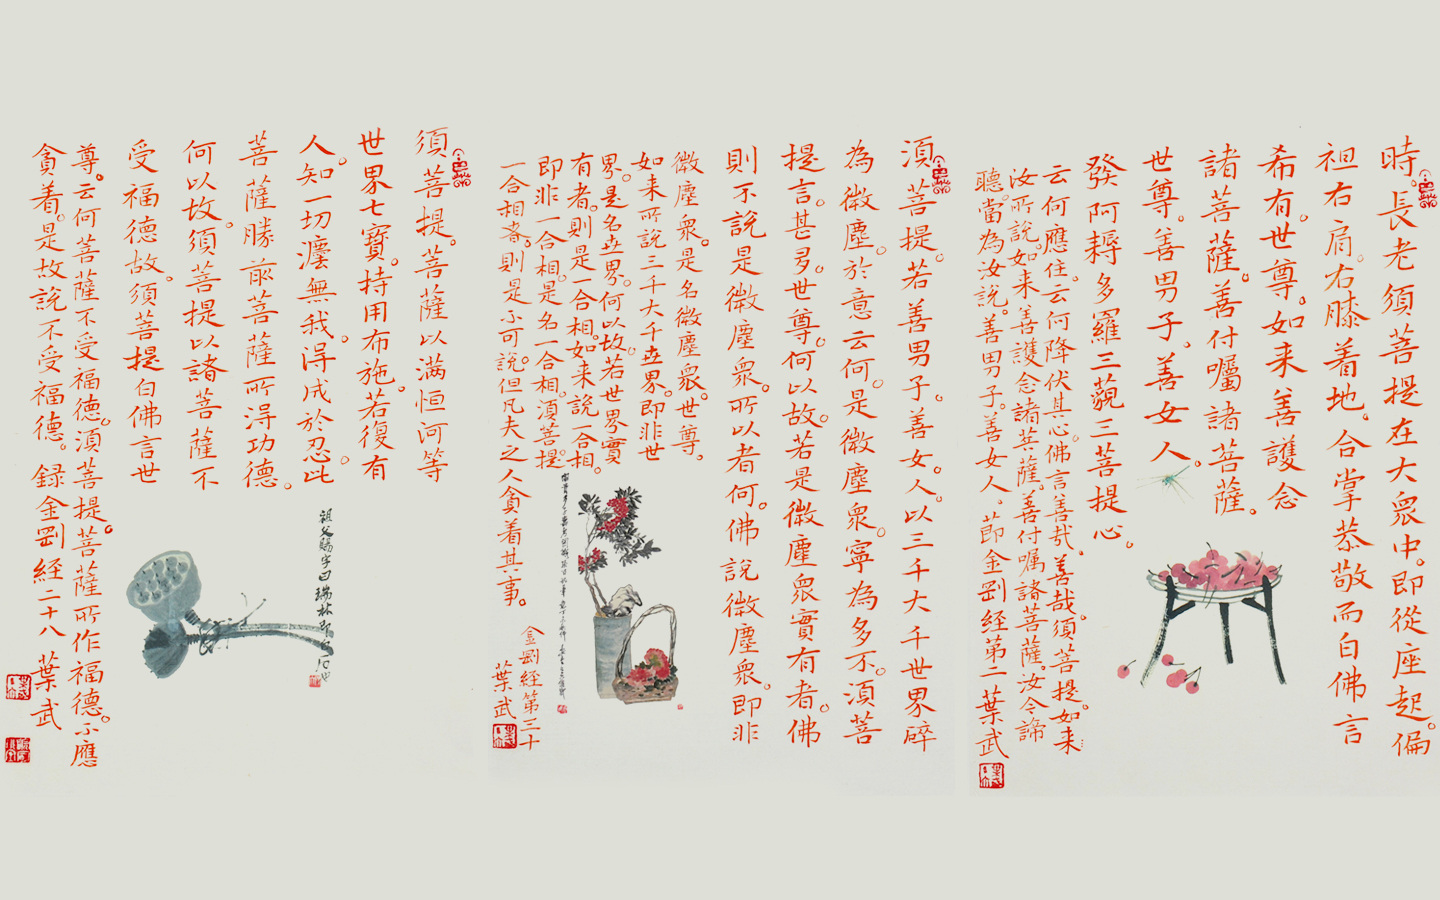 時。長老須菩提在大衆中。即從座起。偏
袒右肩。右膝着地。合掌恭敬而白佛言
希有。世尊。如来善護念
諸菩薩。善付囑諸菩薩。
世尊。善男子、善女人。
發阿耨多羅三藐三菩提心。
云何應住。云何降伏其心。佛言善哉。善哉。須菩提。如来
汝所說。如来善護念諸菩薩。善付囑諸菩薩。汝今諦
聽。當為汝說。善男子。善女人。節金剛経第二 葉武
須菩提。若善男子。善女人。以三千大千世界碎
為微塵。於意云何。是微塵衆。寧為多不。須菩
提言。甚多。世尊。何以故。若是微塵衆實有者。佛
則不說是微塵衆。所以者何。佛說微塵衆。即非
微塵衆。是名微塵衆。世尊。
如来所說三千大千世界。即非世
界。是名世界。何以故。若世界實
有者。則是一合相。如来說一合相。
即非一合相。是名一合相。須菩提。
一合相者。則是不可說。但凡夫之人貪着其事。
金剛経第三十
葉武
須菩提。菩薩以满恒河等
世界七寶。持用布施。若復有
人。知一切法無我。得成於忍。此
菩薩勝前菩薩所得功德。
何以故。須菩提以諸菩薩不
受福德故。須菩提白佛言世
尊。云何菩薩不受福德。須菩提。菩薩所作福德。不應
貪着。是故說不受福德。録金剛経二十八 葉武